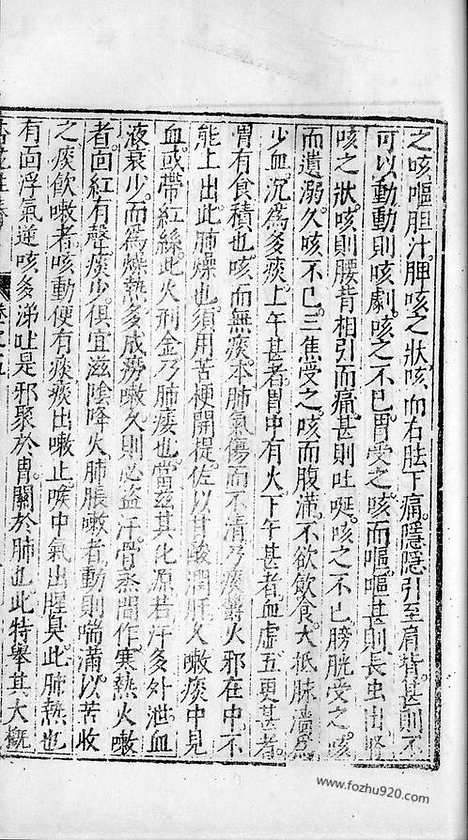 之咳嘔胆汁脾咳之狀咳而右胠下痛隱隱引至肩背甚則不
可以動動則咳劇咳之不已胃受之咳而嘔嘔甚則長虫出腎
咳之狀咳則腰背相引而痛甚則吐涎咳之不已膀胱受之咳
而遺溺久咳不已三焦受之咳而腹滿不欲飲食大抵脉濇為
少血沉為多痰上午甚者胃中有火下午甚者血虛五更甚者
胃有食積也咳而無痰本肺氣傷而不清乃痰欝火邪在中不
能上出此肺燥也須用苦梗開提佐以甘酸潤肝久嗽痰中見
血或帶紅絲此火刑金乃肺痿也當玆其化源若汗多外泄血
液衰少而為燥熱多成癆嗽久則必盗汗骨蒸間作寒熱火嗽
者面紅有聲痰少俱宜滋陰降火肺脹嗽者動則喘滿以苦收
之痰飲嗽者咳動便有痰痰出嗽止喉中氣出腥臭此肺熱也
有面浮氣逆咳多涕吐是邪聚於胃關於肺也此特舉其大概
www.fozhu920.com